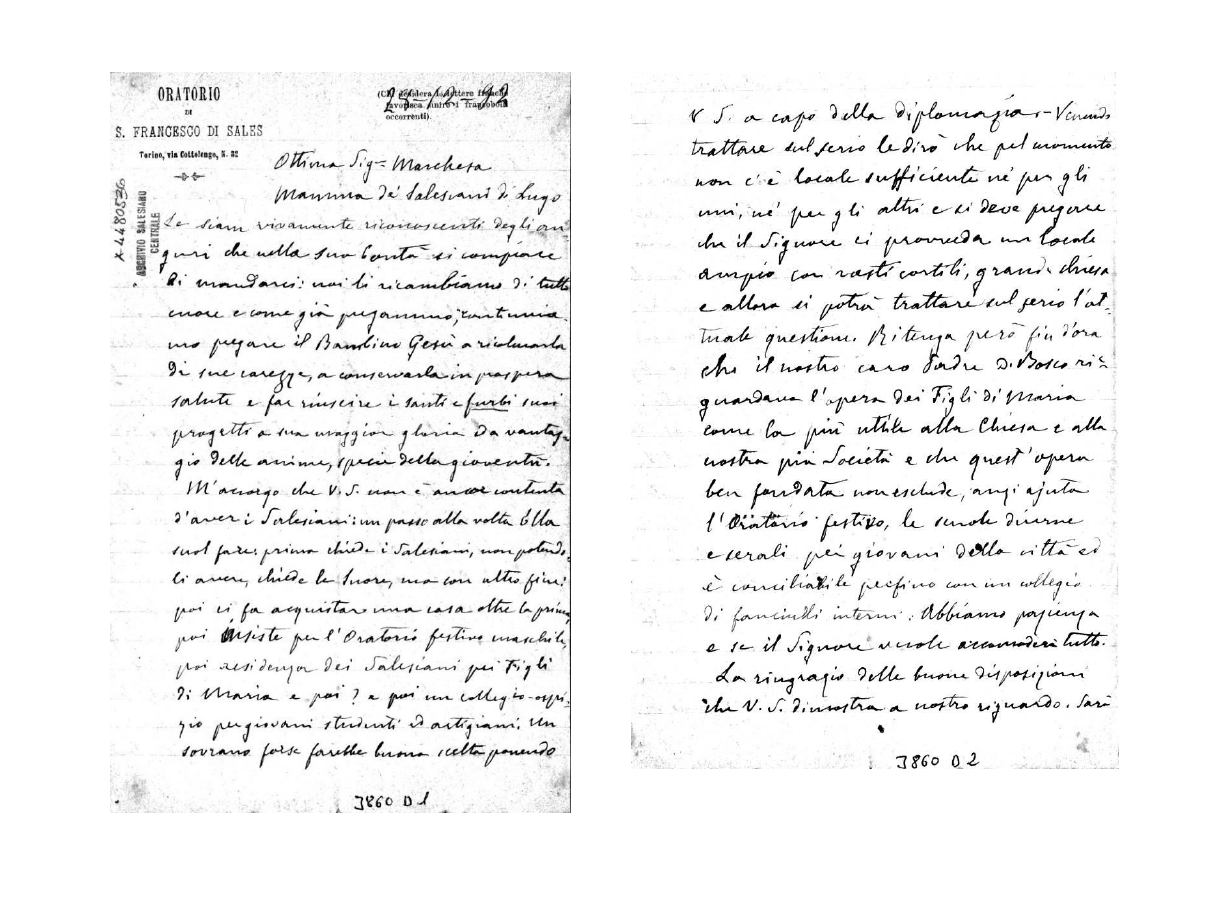 ORATORIO
DI
S. FRANCESCO DI SALES
Torino, via Cottolengo, N. 32
(Chi desidera lettere
favorisca unire i francobolli
occorrenti).
92
X-4480536
ARCHIVIO SALESIANO
CENTRALE
Ottima Sig= Marchesa
Mamma de' Salesiani di Lugo
Le siam vivamente riconoscenti degli au
guri che nella sua bontà si compiace
di mandarci: noi li ricambiamo di tutto
cuore e come già pregammo, continuia
mo pregare il Bambino Gesù a ricolmarla
di sue carezze, a conservarla in prospera
salute e far riuscire i santi e furbi suoi
progetti a sua maggior gloria da vantag=
gio delle anime, specie della gioventù.
M'accorgo che V. S. non è ancor contenta
d'aver i Salesiani: un passo alla volta Ella
suol fare: prima chiede i Salesiani, non potendo
li avere, chiede le Suore, ma con altro fine:
poi ci fa acquistar una casa oltre la prima,
poi insiste per l'Oratorio festivo maschile,
poi residenza dei Salesiani pei Figli
di Maria e poi? e poi un collegio-ospi=
zio per giovani studenti ed artigiani. Un
sovrano forse farebbe buona scelta ponendo
J860 D 1
V. S. a capo della diplomazia - Venendo
trattare sul serio le dirò che pel momento
non c'è locale sufficiente nè per gli
uni, nè per gli altri e si deve pregare
che il Signore ci provveda un locale
ampio con vasti cortili, grande chiesa
e allora si potrà trattare sul serio l'at=
tuale questione. Ritenga però fin d'ora
che il nostro caro Padre D. Bosco ri=
guardava l'opera dei Figli di Maria
come la più utile alla Chiesa e alla
nostra pia Società e che quest'opera
ben fondata non esclude, anzi ajuta
l'Oratorio festivo, le scuole diurne
e serali pei giovani della città ed
è conciliabile perfino con un collegio
di fanciulli interni. Abbiamo pazienza
e se il Signore vuole accomoderà tutto.
La ringrazio delle buone disposizioni
che V. S. dimostra a nostro riguardo. Sarà
J860 D 2